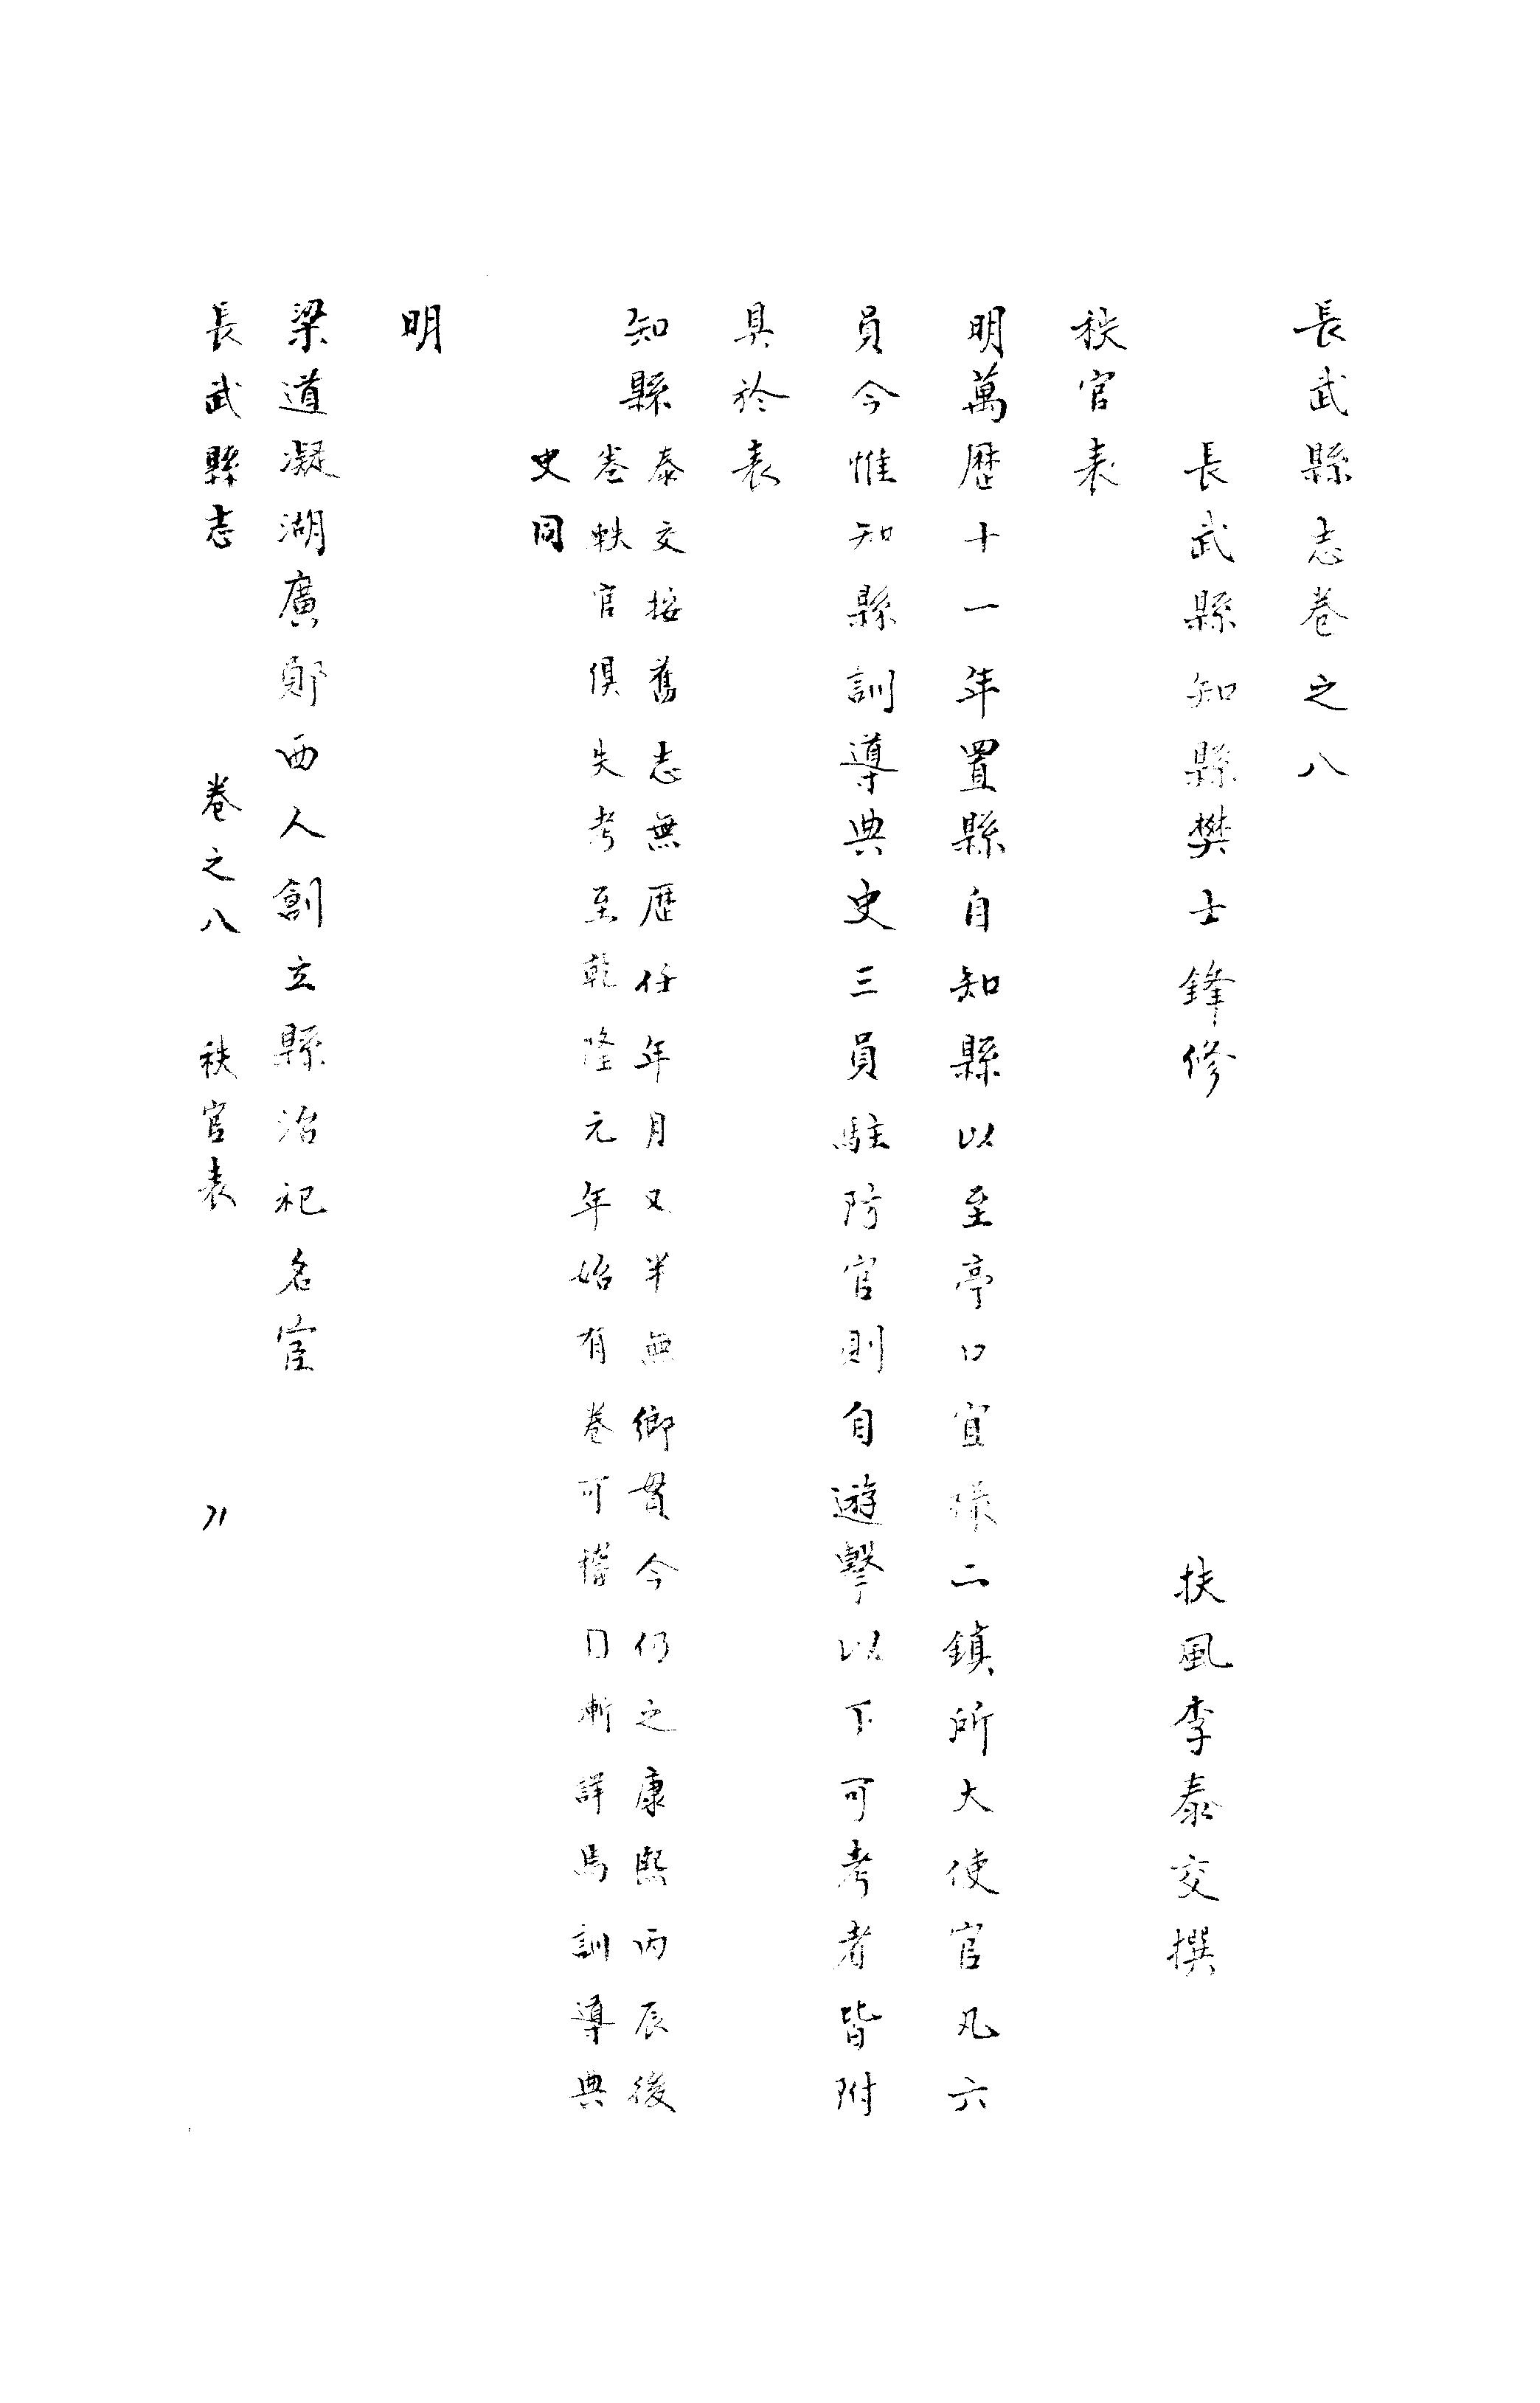 長武縣志卷之八
長武縣知縣樊士鋒修
扶風李泰交撰
秩官表
明萬歴十一年置縣自知縣以至亭口宜祿二鎮所大使官凡六
員今惟知縣訓導典史三員駐防官則自遊擊以下可考者皆附
具於表
知縣
泰交按舊志無歴任年月又半無鄉貫今仍之康熙丙辰後
卷軼官俱失考至乾隆元年始有卷可稽日漸詳焉訓導典
史同
明
梁道凝湖廣鄖西人創立縣治祀名宦
長武縣志 卷之八 秩官表